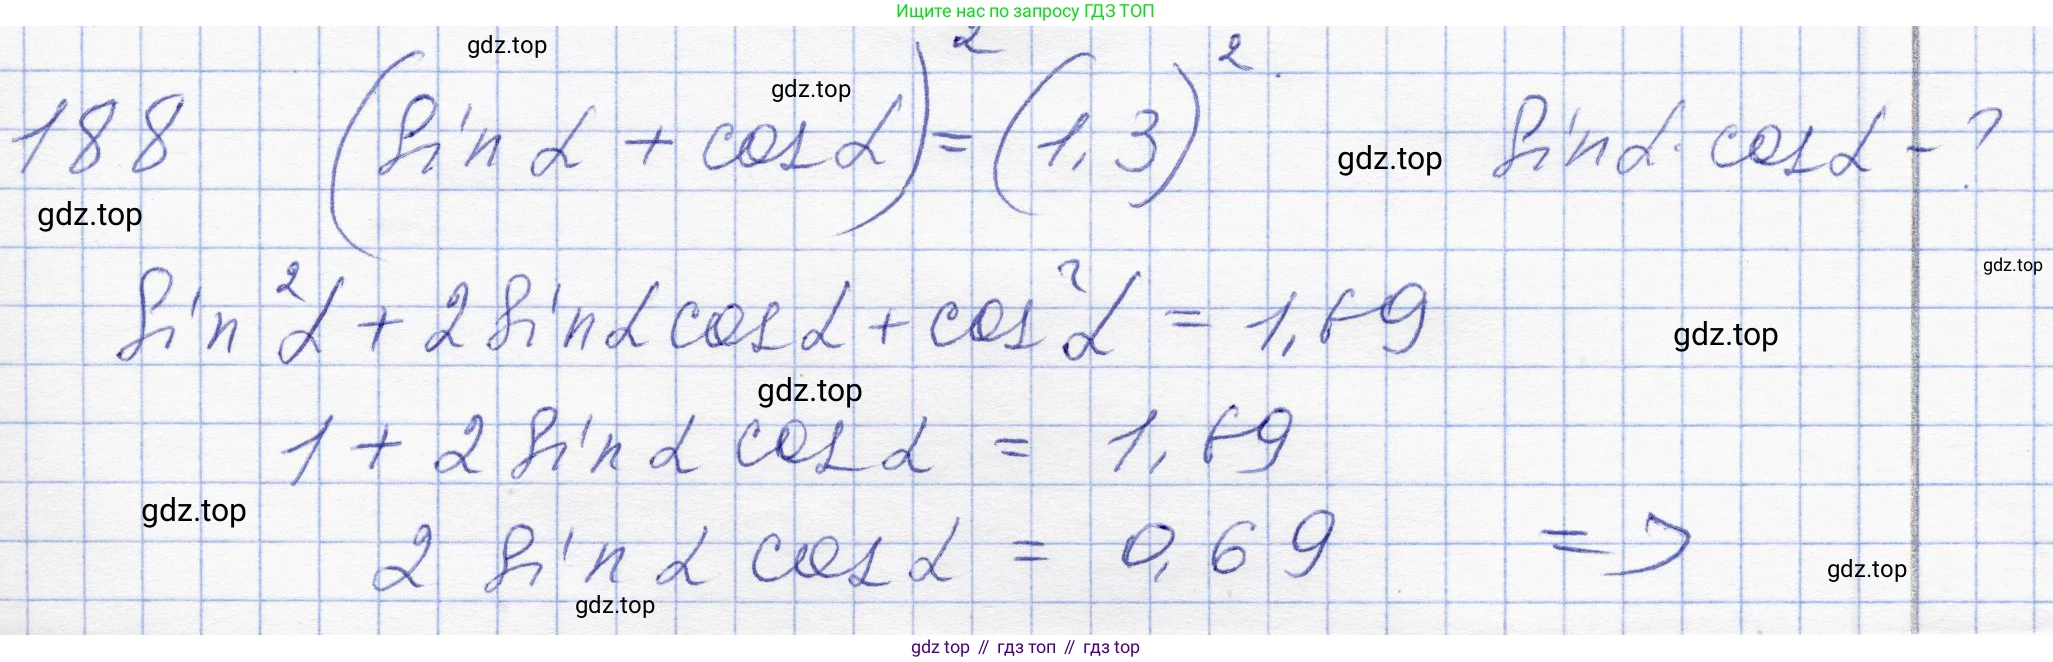 Ищите нас по запросу ГДЗ ТОП
gdz.top
188 (sin α + cos α)² = (1,3)². sin α · cos α - ?
gdz.top
gdz.top
gdz.top
gdz.top
sin² α + 2 sin α cos α + cos² α = 1,69
gdz.top
gdz.top
1 + 2 sin α cos α = 1,69
gdz.top
2 sin α cos α = 0,69 =>
gdz.top
gdz.top
gdz top // гдз топ // гдз top